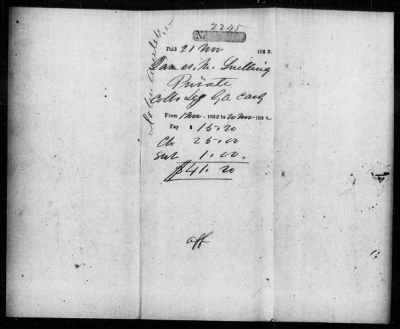 No. 2245
Paid 21 Nov 186
James M. Snelling
Private
Cobb's Leg Ga Cavy
From 1 Nov 186 to 20 Nov 186
Pay $ 15.20
Clo 25.00
1.00.
$41.20